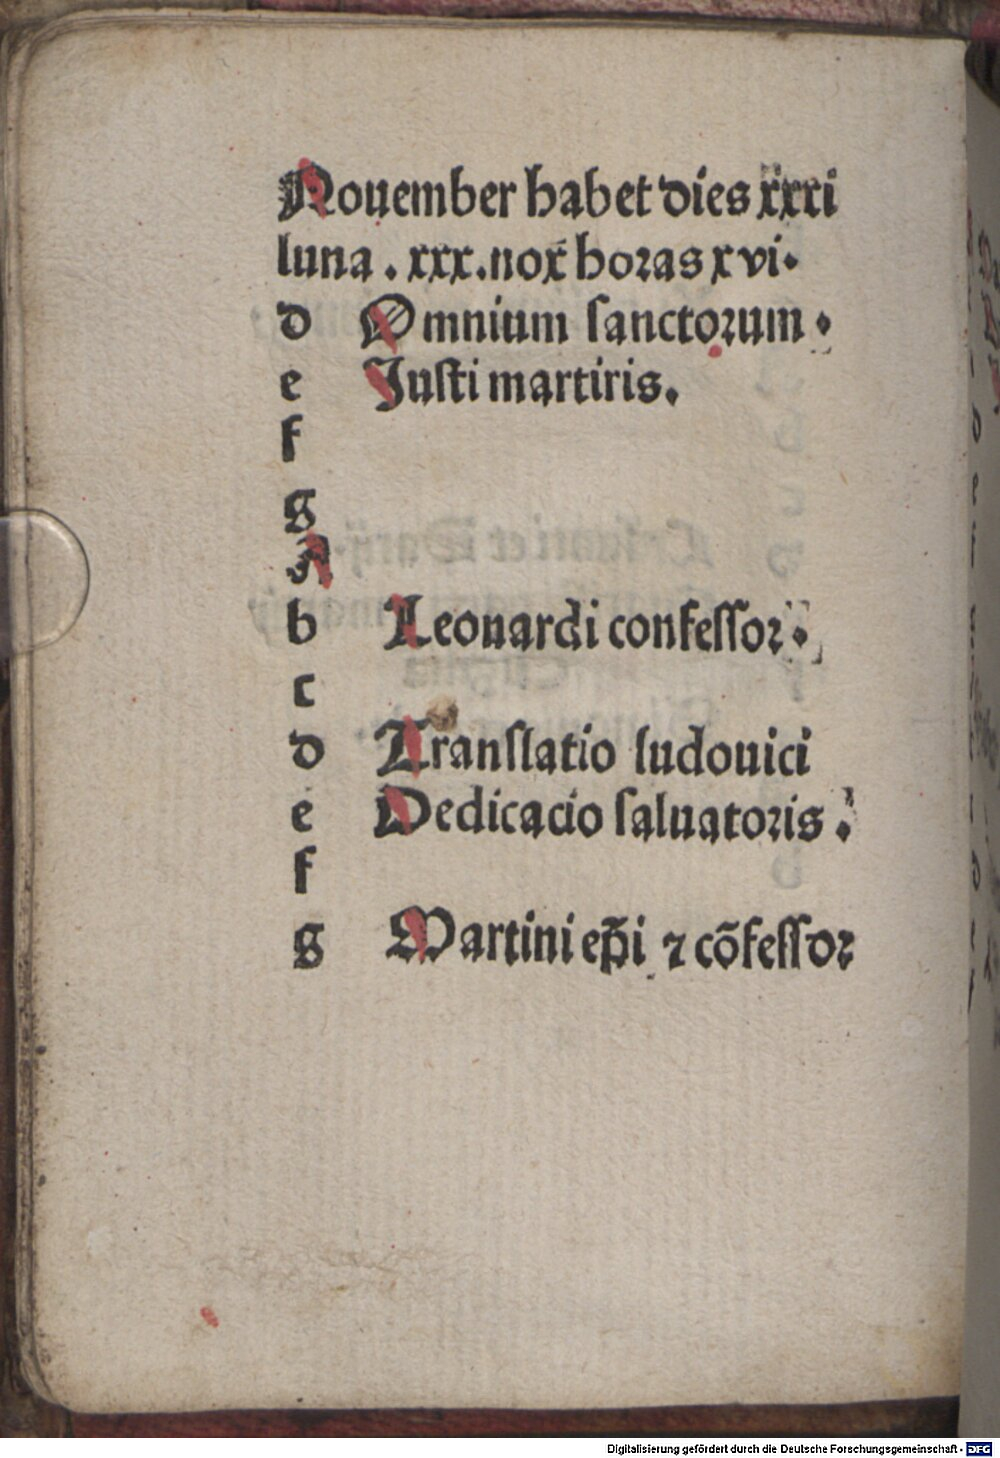 Nouember habet dies xxxi
luna . xxx. nox horas xvi.
d Omnium sanctorum .
e Justi martiris.
f
g
A
b Leonardi confessor .
c
d Translatio ludouici
e Dedicacio saluatoris .
f
g Martini ep̄i ⁊ cōfessor
Digitalisierung gefördert durch die Deutsche Forschungsgemeinschaft - DFG